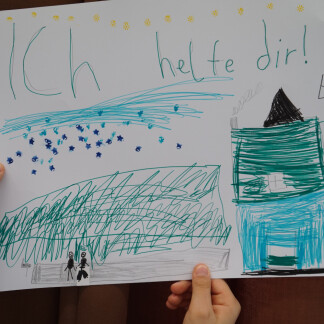 ICh helfe dir!